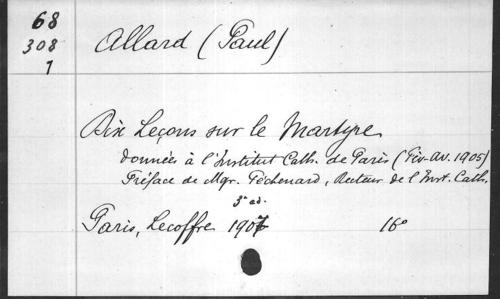 68
308
1
Allard (Paul)
Dix Leçons sur le Martyre
données à l'Institut Cath. de Paris (Fév-Av. 1905)
Préface de Mgr. Péchenard, Recteur de l'Inst. Cath.
3e ed.
Paris, Lecoffre 1907 16°